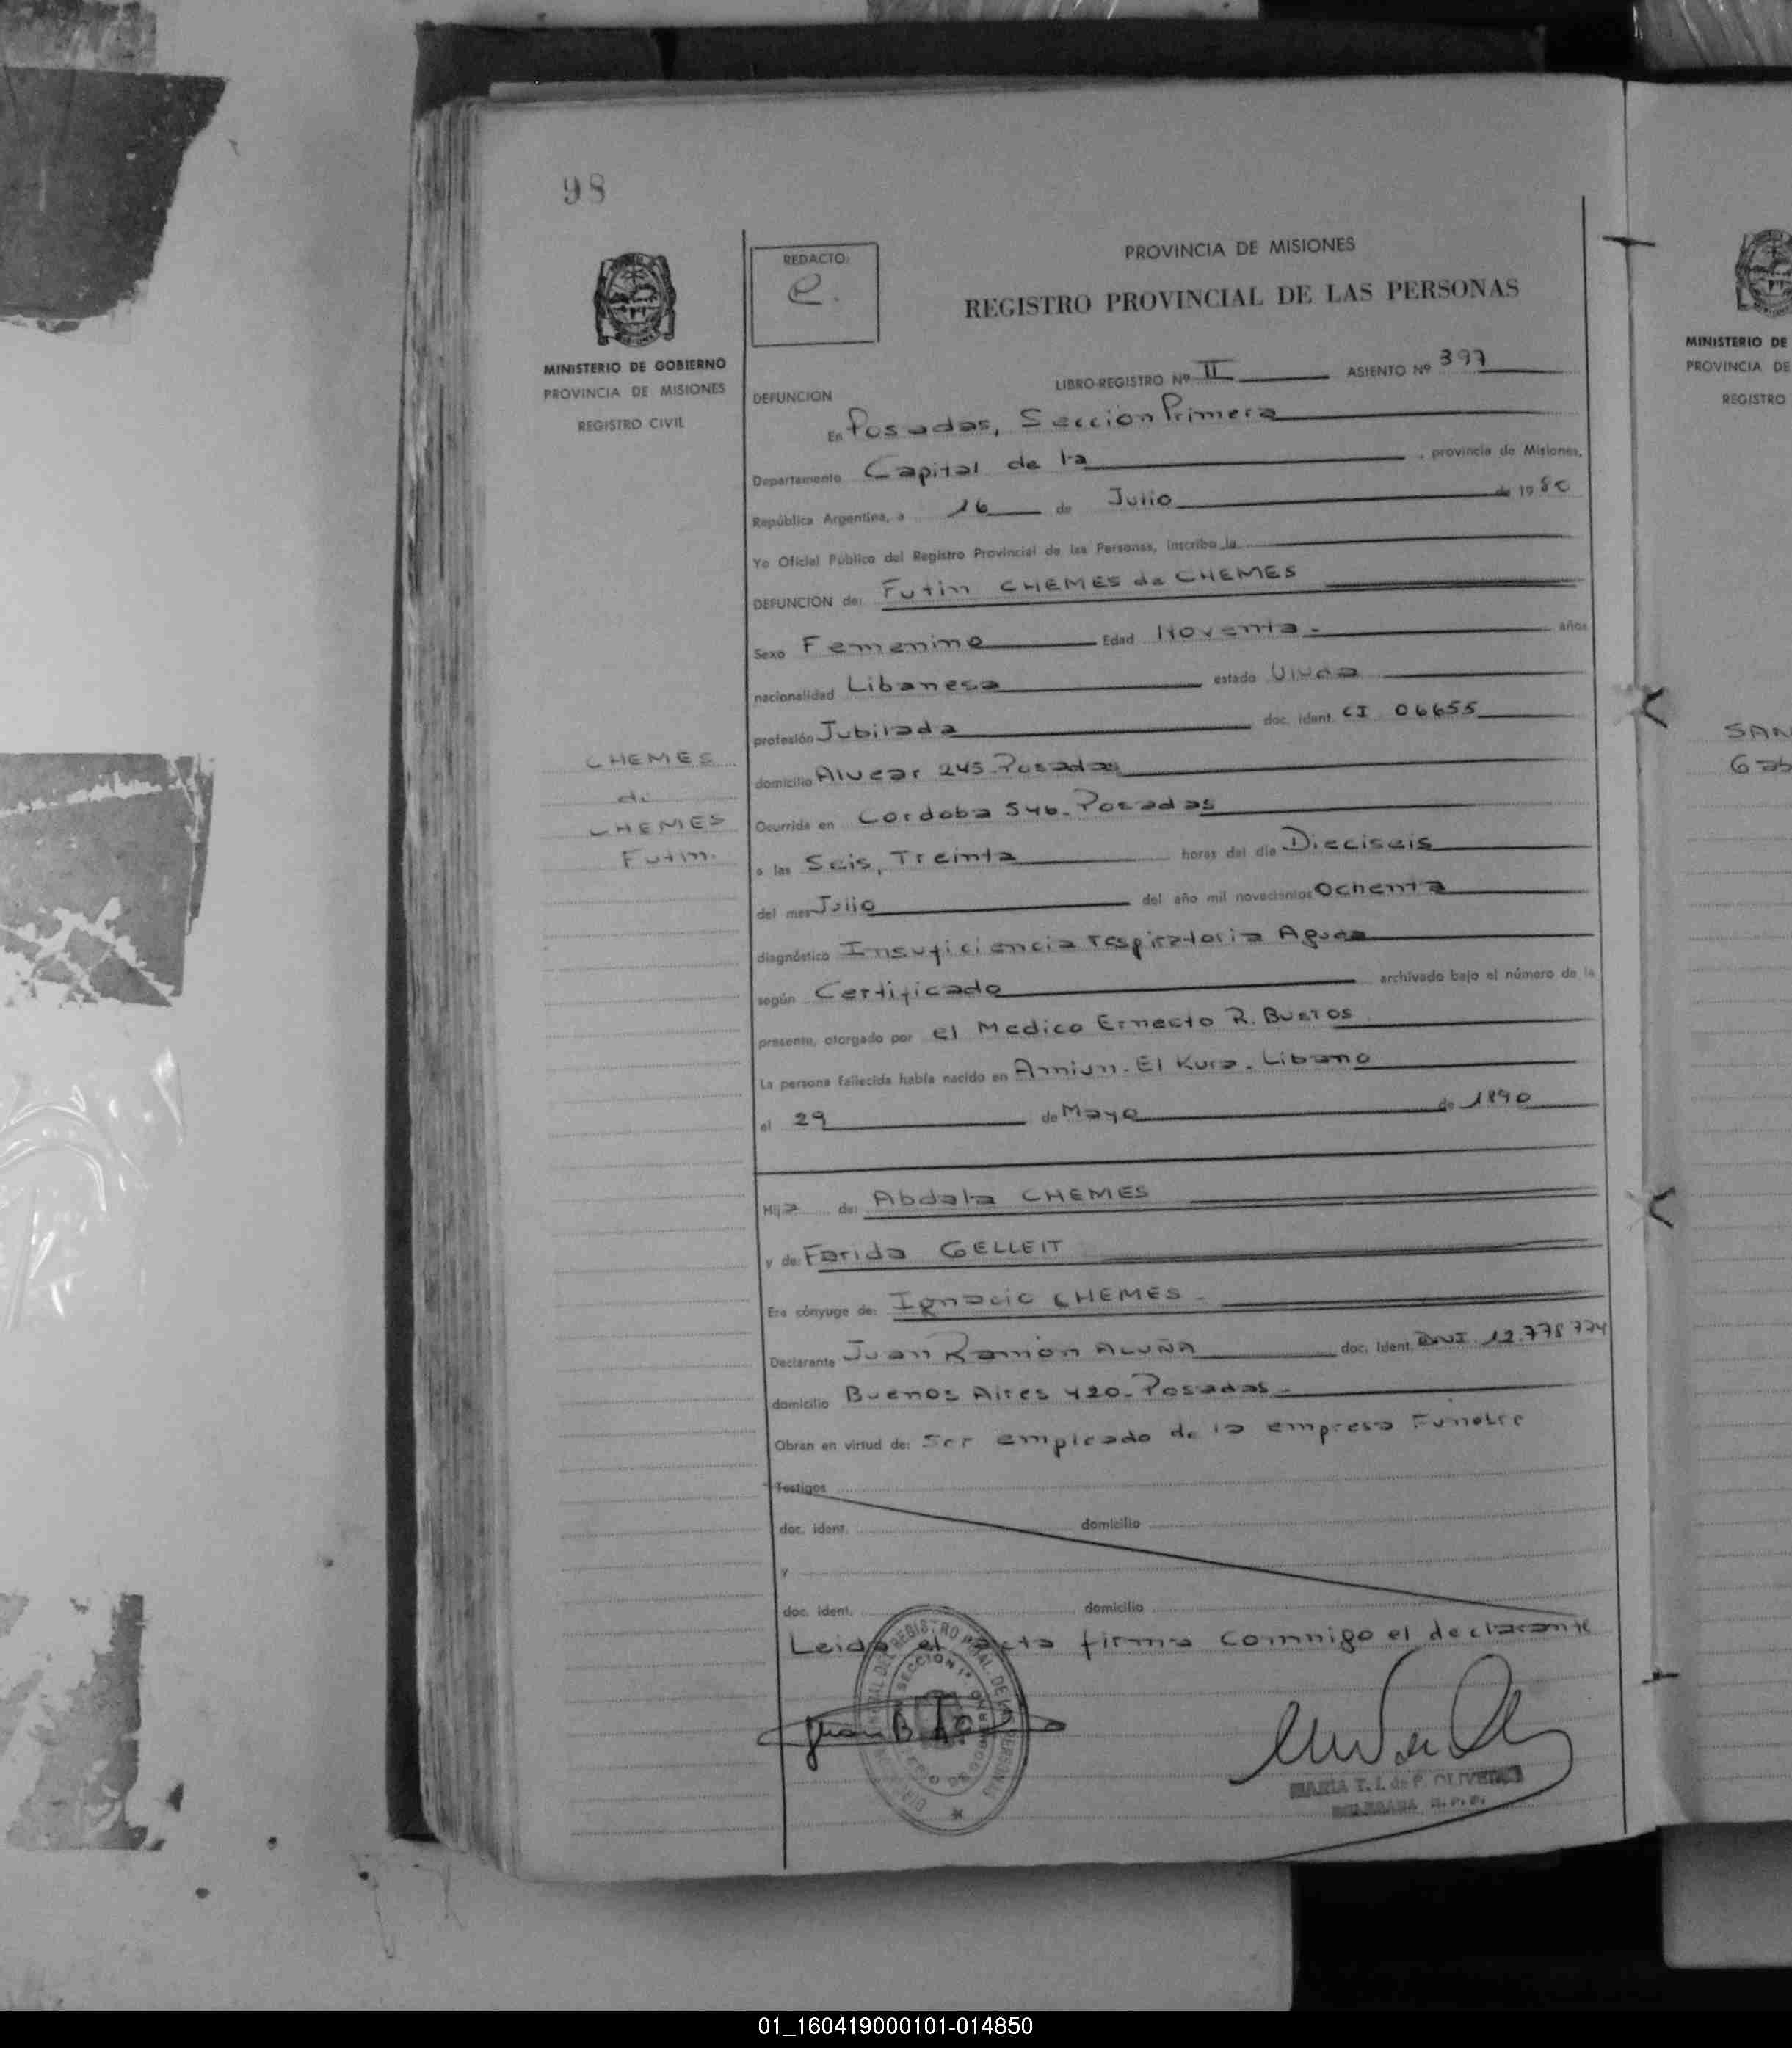 98
REDACTO:
e.
PROVINCIA DE MISIONES
REGISTRO PROVINCIAL DE LAS PERSONAS
MINISTERIO DE GOBIERNO
PROVINCIA DE MISIONES
REGISTRO CIVIL
LIBRO-REGISTRO Nº II ASIENTO Nº 397
DEFUNCION
En Posadas, Sección Primera
Departamento Capital de la , provincia de Misiones,
República Argentina, a 16 de Julio de 1980
Yo Oficial Público del Registro Provincial de las Personas, inscribo la
DEFUNCION de: Futin CHEMES de CHEMES
Sexo Femenino Edad Noventa.- años
nacionalidad Libanesa estado Viuda
profesión Jubilada doc. ident. CI 06655
domicilio Alvear 245-Posadas
Ocurrida en Cordoba 546-Posadas
a las Seis, Treinta horas del día Dieciseis
del mes Julio del año mil novecientos Ochenta
diagnóstico Insuficiencia respiratoria Aguda
según Certificado archivado bajo el número de la
presente, otorgado por el Medico Ernesto R. Bustos
La persona fallecida había nacido en Amiun-El Kura-Libano
el 29 de Mayo de 1890
CHEMES
de
CHEMES
Futin.
Hija de: Abdala CHEMES
y de: Farida GELLEIT
Era cónyuge de: Ignacio CHEMES-
Declarante Juan Ramón ACUÑA doc. Ident. DNI. 12.778774
domicilio Buenos Aires 420-Posadas-
Obran en virtud de: Ser empleado de la empresa Funebre
Testigos
doc. ident. domicilio
y
doc. ident. domicilio
Leida el acta firma conmigo el declarante
MARIA T. I. de P. OLIVERA
DELEGADA R. P. P.
MINISTERIO DE
PROVINCIA DE
REGISTRO
SAN
Gab
01_160419000101-014850